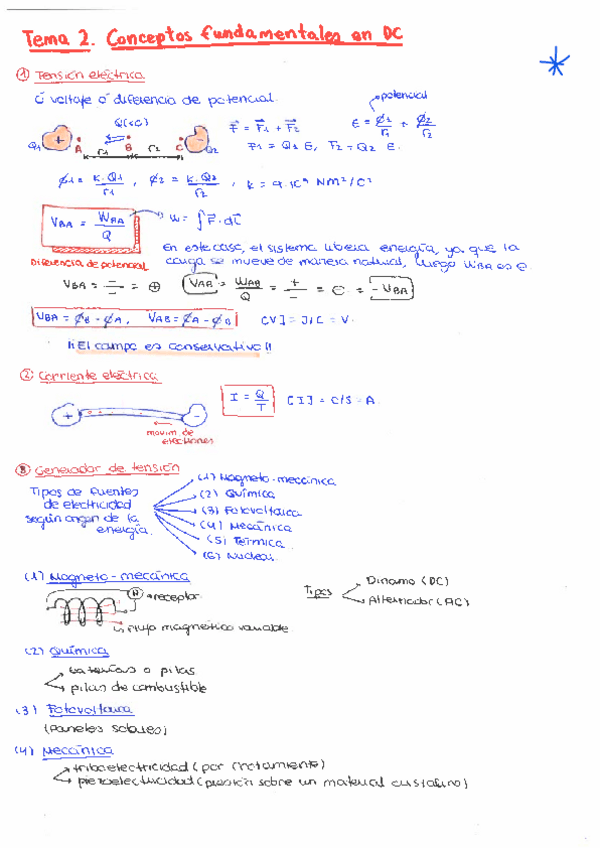 Tema 2. Conceptos fundamentales en DC
① Tensión eléctrica
ó voltaje ó diferencia de potencial.
potencial
Q(<0)
Q1 + A B C - Q2
r1 r2
F = F1 + F2
E = φ1/r1 + φ2/r2
F1 = Q1 E, F2 = Q2 E.
φ1 = K·Q1/r1, φ2 = K·Q2/r2, K = 9·10⁹ Nm²/C²
VBA = WBA/Q
W = ∫F·dl
Diferencia de potencial
En este caso, el sistema libera energía, ya que la
carga se mueve de manera natural, luego WBA es ⊖
VBA = -/- = ⊕
VAB = WAB/Q = +/- = ⊖ = -VBA
VBA = φB - φA, VAB = φA - φB
[V] = J/C = V.
¡¡El campo es conservativo!!
② Corriente eléctrica
+ -
movim. de
electrones
I = Q/T
[I] = C/S = A.
③ Generador de tensión
Tipos de fuentes
de electricidad
según origen de la
energía.
(1) Magneto-mecánica
(2) Química
(3) Fotovoltaica
(4) Mecánica
(5) Térmica
(6) Nuclear.
(1) Magneto-mecánica
receptor
Flujo magnético variable
Tipos
Dinamo (DC)
Alternador (AC)
(2) Química
baterías o pilas
pilas de combustible
(3) Fotovoltaica
(Paneles solares)
(4) Mecánica
triboelectricidad (por frotamiento)
piezoelectricidad (presión sobre un material cristalino)